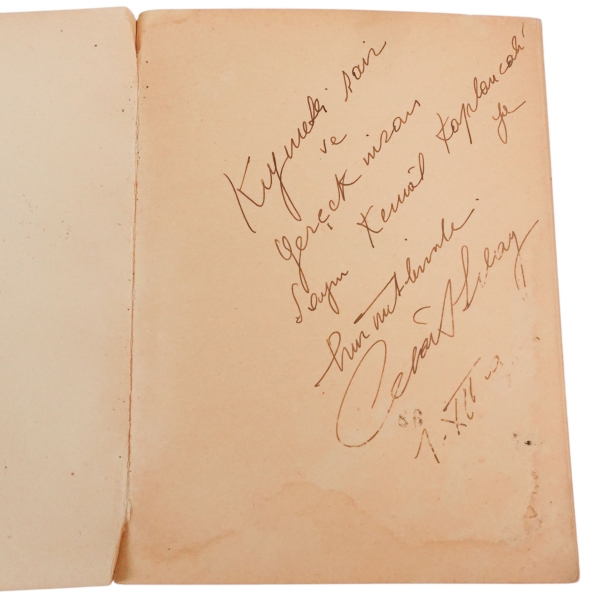 Kıymetli şair
ve
gerçek insan
Sayın Kemâl Kaplancalı
ya
hürmetlerimle.
Celâl Sılay
1-XII
86